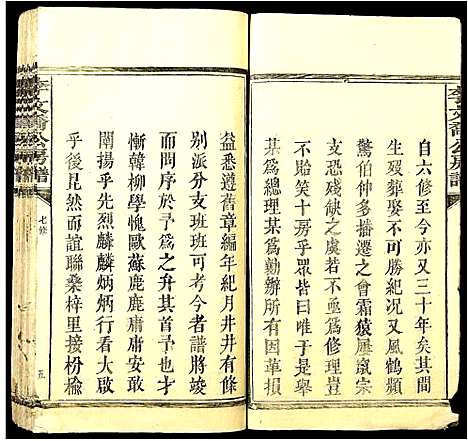 李文齋公房譜
自六修至今亦又三十年矣其間
生殘葬娶不可勝紀況又風鶴頻
驚伯仲多播遷之會霜猿屢寂宗
支恐殘缺之虞若不亟為修理豈
不貽笑十房乎眾皆曰唯于是舉
某為總理某為勷辦所有因革損
益悉遵舊章編年紀月井井有條
別派分支班班可考今者譜將竣
而問序於予為之升其首予也才
慚韓柳學愧歐蘇鹿鹿庸庸安敢
闡揚乎先烈麟麟炳炳行看大啟
乎後昆然而誼聯桑梓里接枌榆
七修
五